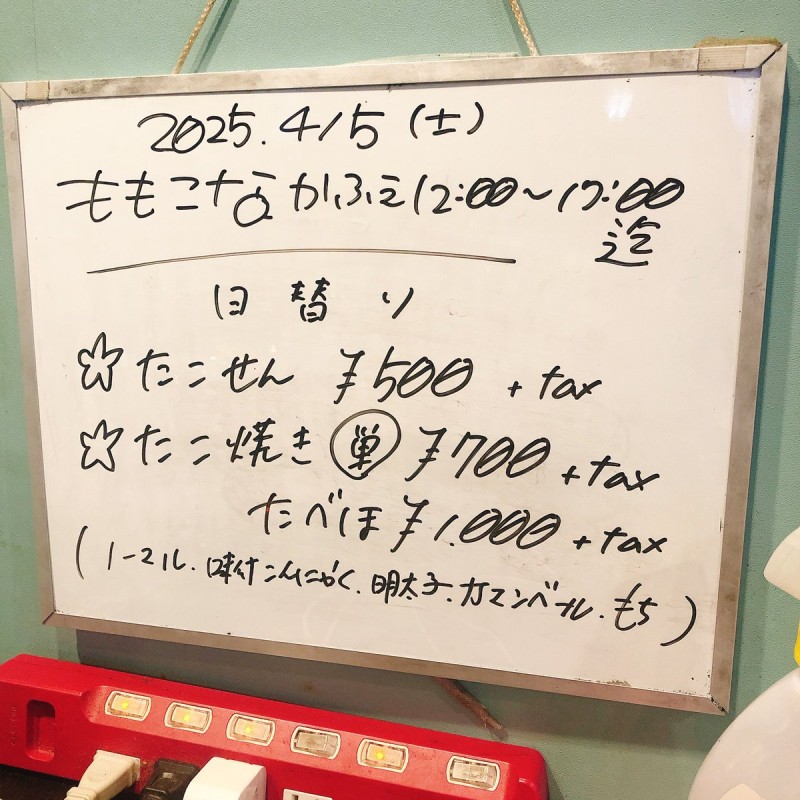 2025. 4/5 (土)
ももこなな かふぇ 12:00～17:00
迄
日替り
☆たこせん ¥500 + tax
☆たこ焼き 単 ¥700 + tax
たべほ ¥1.000 + tax
(ノーマル. 味付こんにゃく. 明太子. カマンベール. もち)